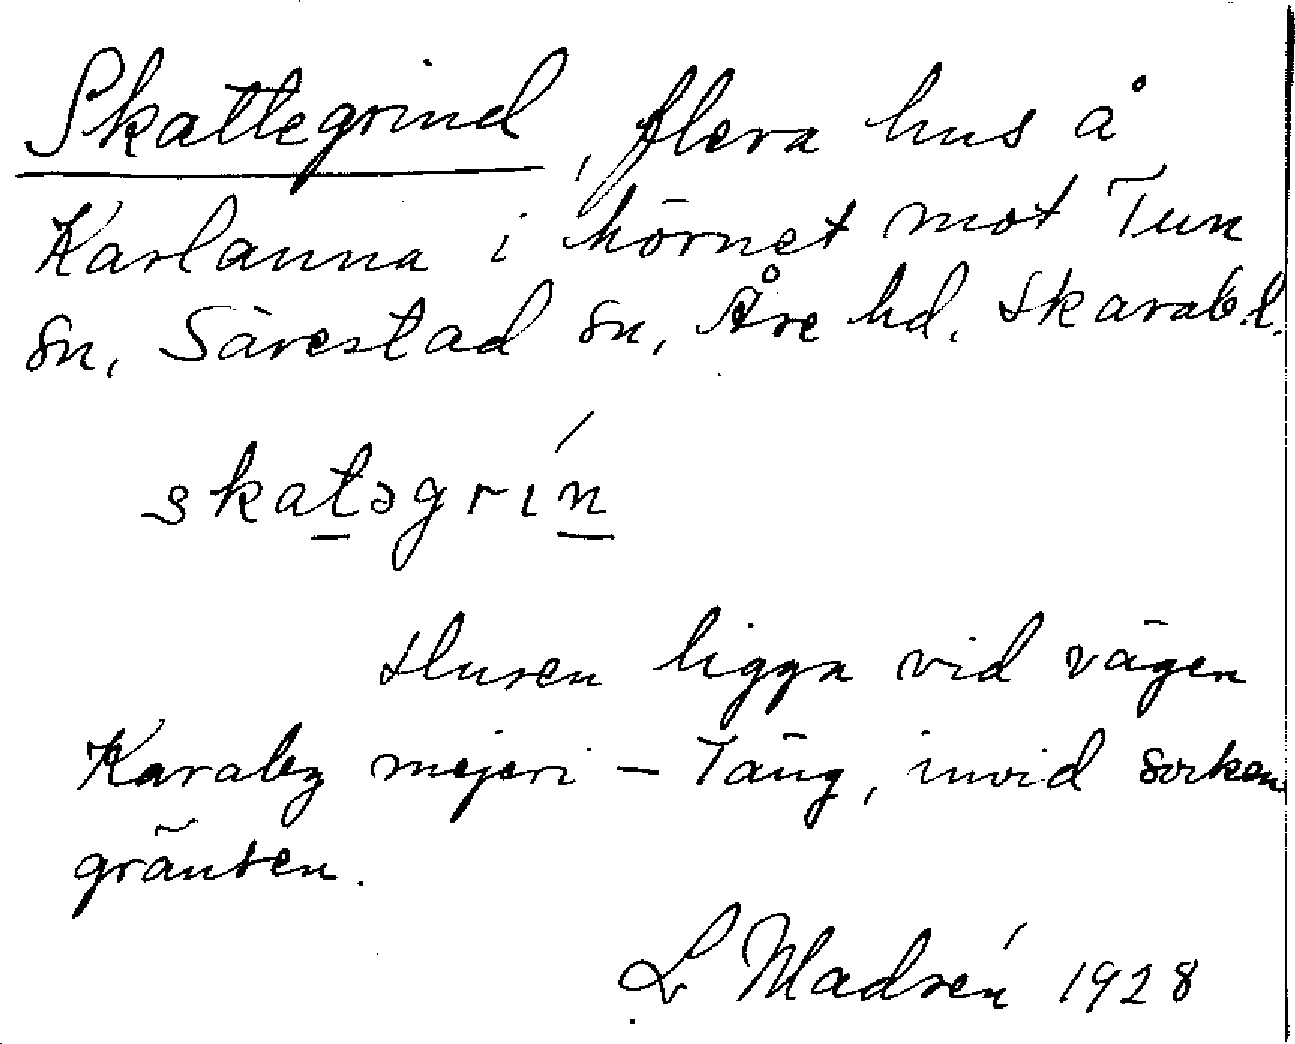 Skattegrind, flera hus å
Karlanna i hörnet mot Tun
sn, Särestad sn, Åre hd. Skarab.l.
skatəgrín
Husen ligga vid vägen
Karaby mejeri – Täng, invid socken
gränsen.
L Madsén 1928